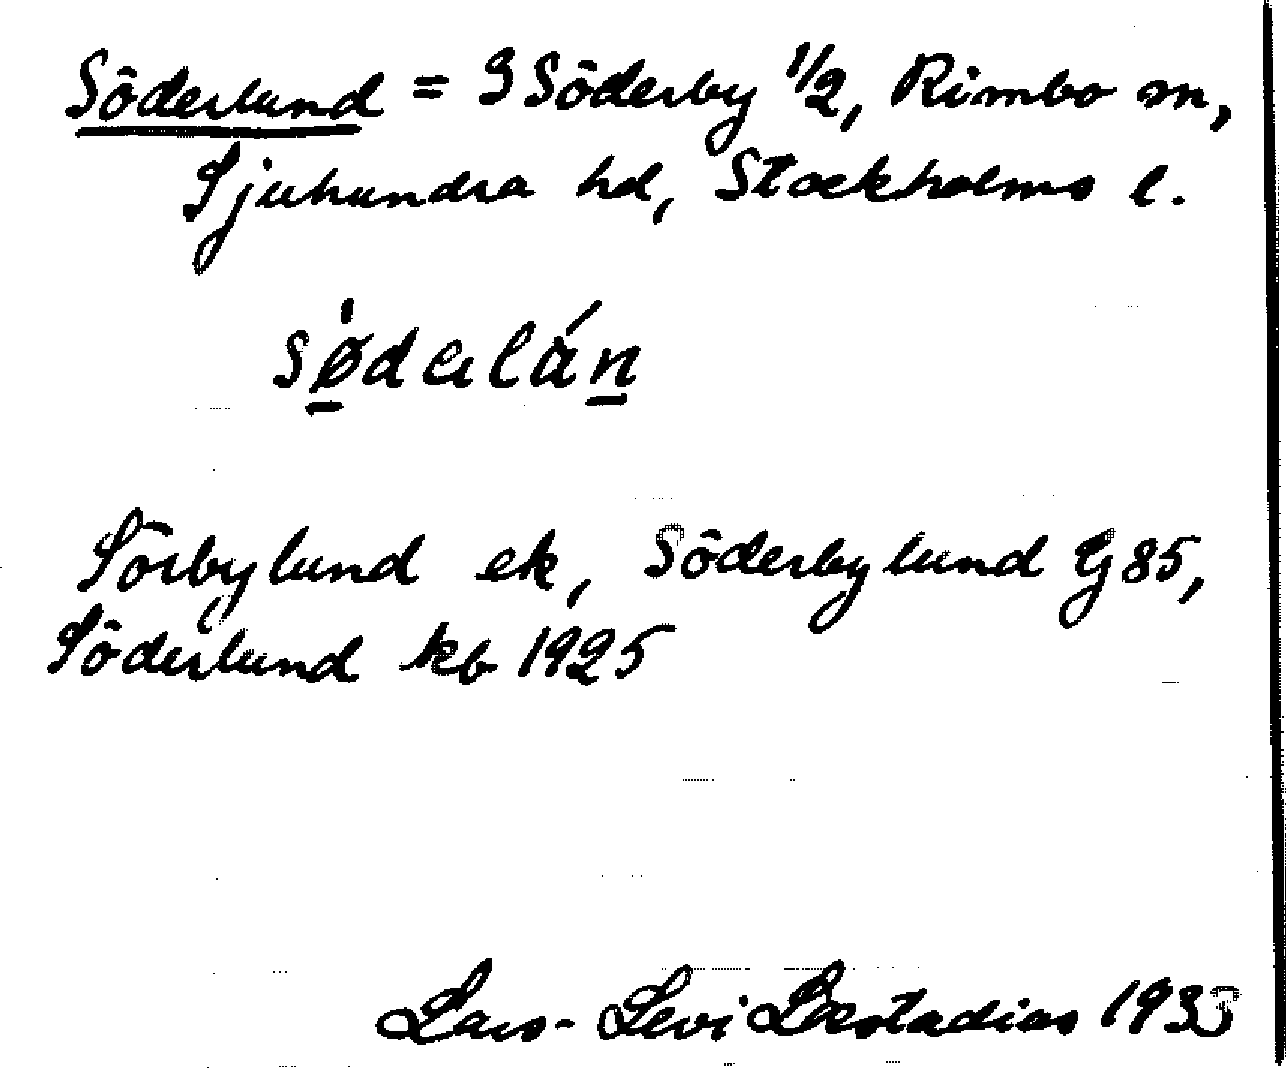 Söderlund = 3 Söderby 1/2, Rimbo sn,
Sjuhundra hd, Stockholms l.
sødalán
Sörbylund ek, Söderbylund Gj 85,
Söderlund kb 1925
Lars-Levi Læstadius 1933